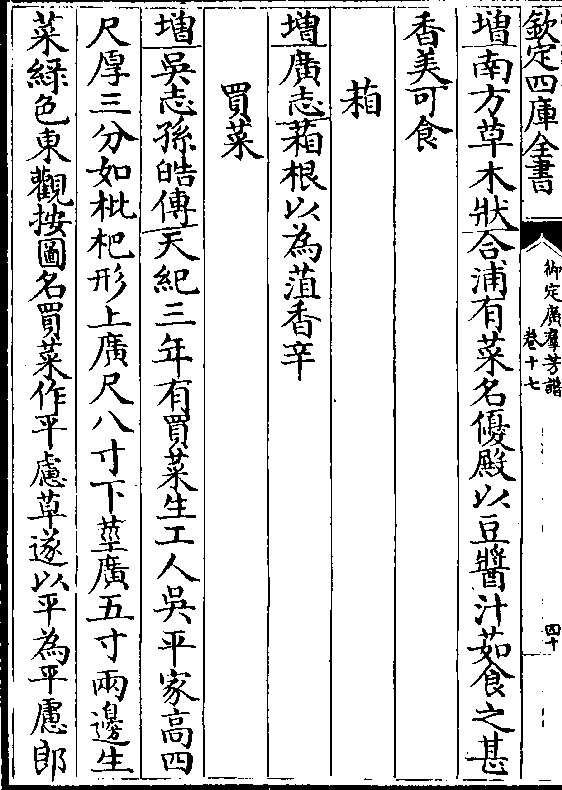 欽定四庫全書
御定廣羣芳譜
卷十七
四十
増南方草木狀合浦有菜名優殿以豆醬汁茹食之甚
香美可食
葙
増廣志葙根以為菹香辛
買菜
増吳志孫皓傳天紀三年有買菜生工人吳平家高四
尺厚三分如枇杷形上廣尺八寸下莖廣五寸兩邊生
菜綠色東觀按圖名買菜作平慮草遂以平為平慮郎